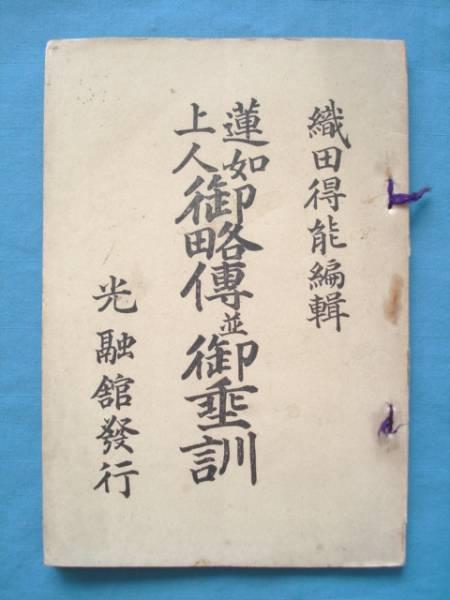 織田得能編輯
蓮如上人御略傳並御垂訓
光融舘發行